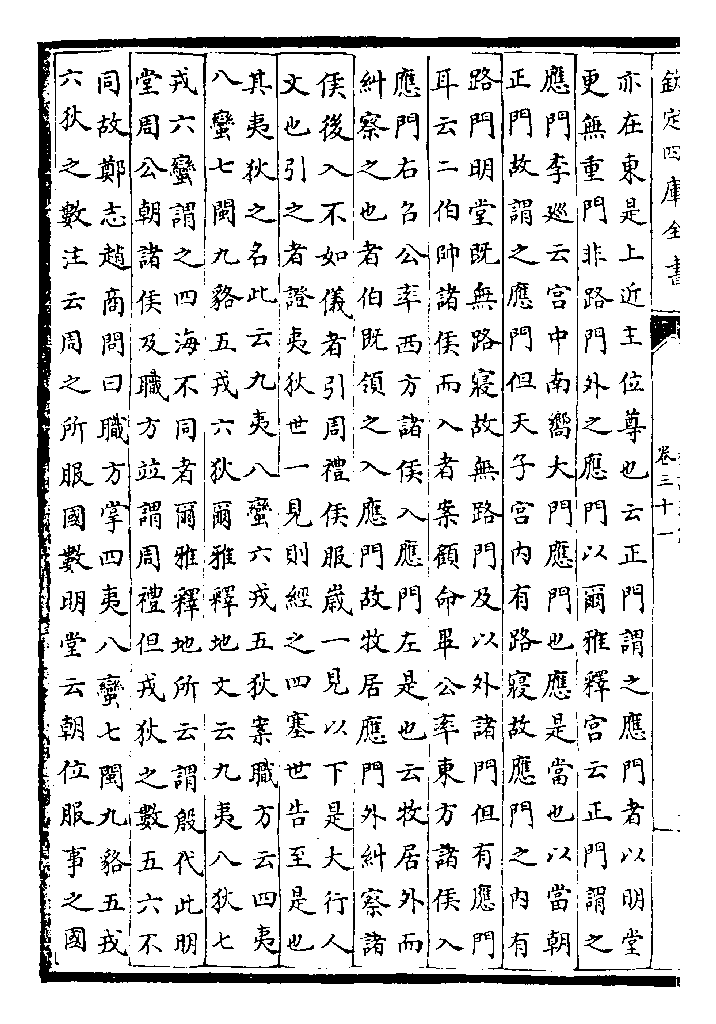 欽定四庫全書
卷三十一
亦在東是上近主位尊也云正門謂之應門者以明堂
更無重門非路門外之應門以爾雅釋宮云正門謂之
應門李廵云宮中南嚮大門應門也應是當也以當朝
正門故謂之應門但天子宮内有路寢故應門之内有
路門明堂既無路寢故無路門及以外諸門但有應門
耳云二伯帥諸侯而入者案顧命畢公率東方諸侯入
應門右召公率西方諸侯入應門左是也云牧居外而
糾察之也者伯既領之入應門故牧居應門外糾察諸
侯後入不如儀者引周禮侯服歲一見以下是大行人
文也引之者證夷狄世一見則經之四塞世告至是也
其夷狄之名此云九夷八蠻六戎五狄案職方云四夷
八蠻七閩九貉五戎六狄爾雅釋地文云九夷八狄七
戎六蠻謂之四海不同者爾雅釋地所云謂殷代此明
堂周公朝諸侯及職方竝謂周禮但戎狄之數五六不
同故鄭志趙商問曰職方掌四夷八蠻七閩九貉五戎
六狄之數注云周之所服國數明堂云朝位服事之國